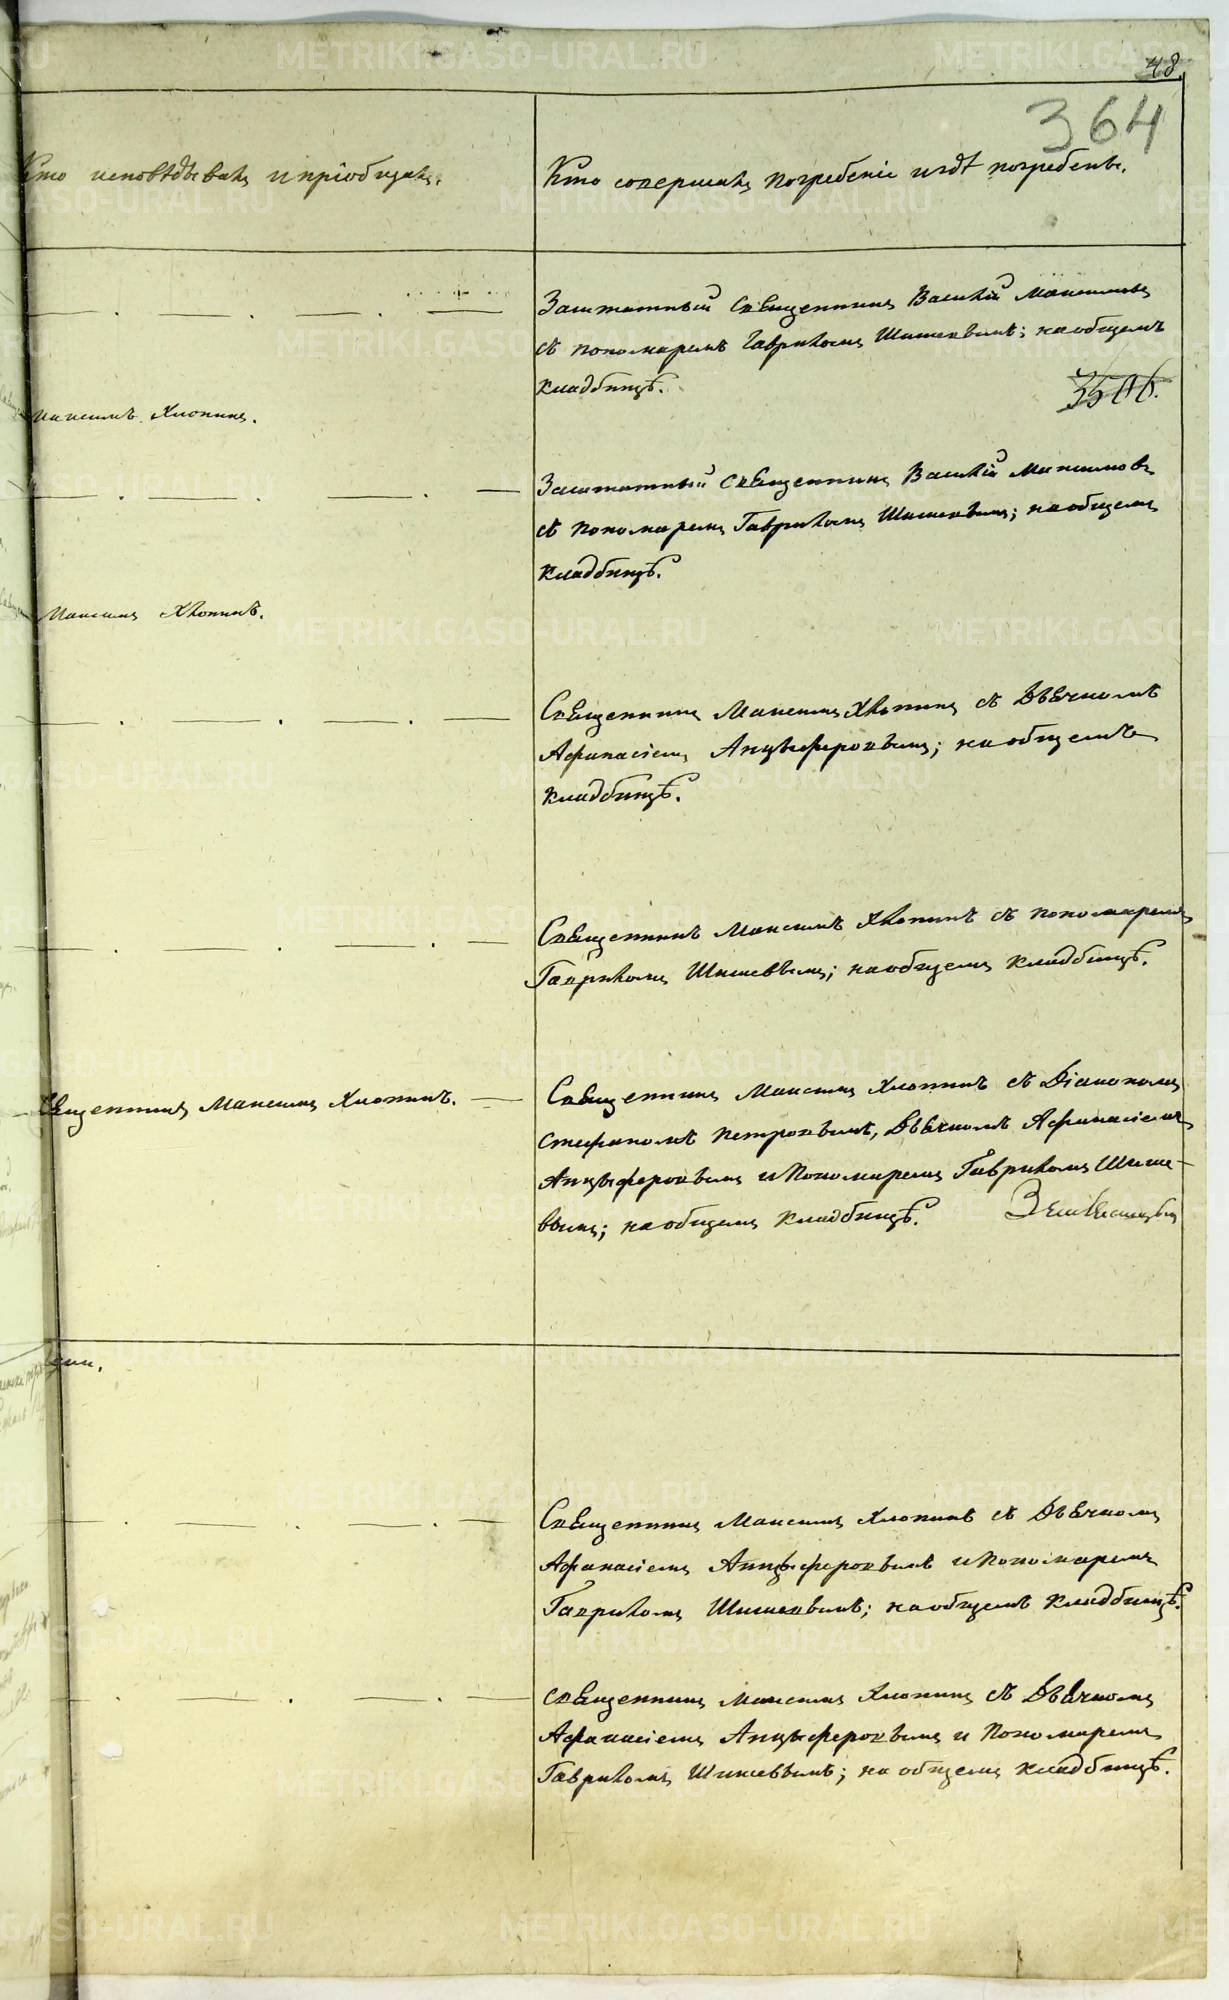 48.
364
Кто исповѣдывалъ и пріобщалъ.
Кто совершалъ погребеніе и гдѣ погребенъ.
Заштатный Священникъ Василій Максимовъ
съ пономаремъ Гавриломъ Шишевымъ; на общемъ
кладбищѣ.
350 б.
Максимъ Хлопинъ.
Заштатный Священникъ Василій Максимовъ
съ пономаремъ Гавриломъ Шишевымъ; на общемъ
кладбищѣ.
Максимъ Хлопинъ.
Священникъ Максимъ Хлопинъ съ Дьячкомъ
Афанасіемъ Анцыферовымъ; на общемъ
кладбищѣ.
Священникъ Максимъ Хлопинъ съ пономаремъ
Гавриломъ Шишевымъ; на общемъ кладбищѣ.
Священникъ Максимъ Хлопинъ.
Священникъ Максимъ Хлопинъ съ Діакономъ
Стефаномъ Петровымъ, Дьячкомъ Афанасіемъ
Анцыферовымъ и Пономаремъ Гавриломъ Шише-
вымъ; на общемъ кладбищѣ.
Священникъ Максимъ Хлопинъ съ Дьячкомъ
Афанасіемъ Анцыферовымъ и Пономаремъ
Гавриломъ Шишевымъ; на общемъ кладбищѣ.
Священникъ Максимъ Хлопинъ съ Дьячкомъ
Афанасіемъ Анцыферовымъ и Пономаремъ
Гавриломъ Шишевымъ; на общемъ кладбищѣ.
METRIKI.GASO-URAL.RU